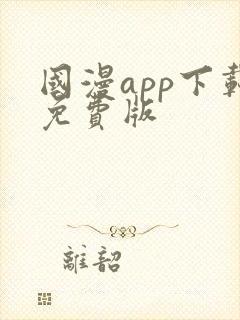 國漫app下載
免費版
離韶